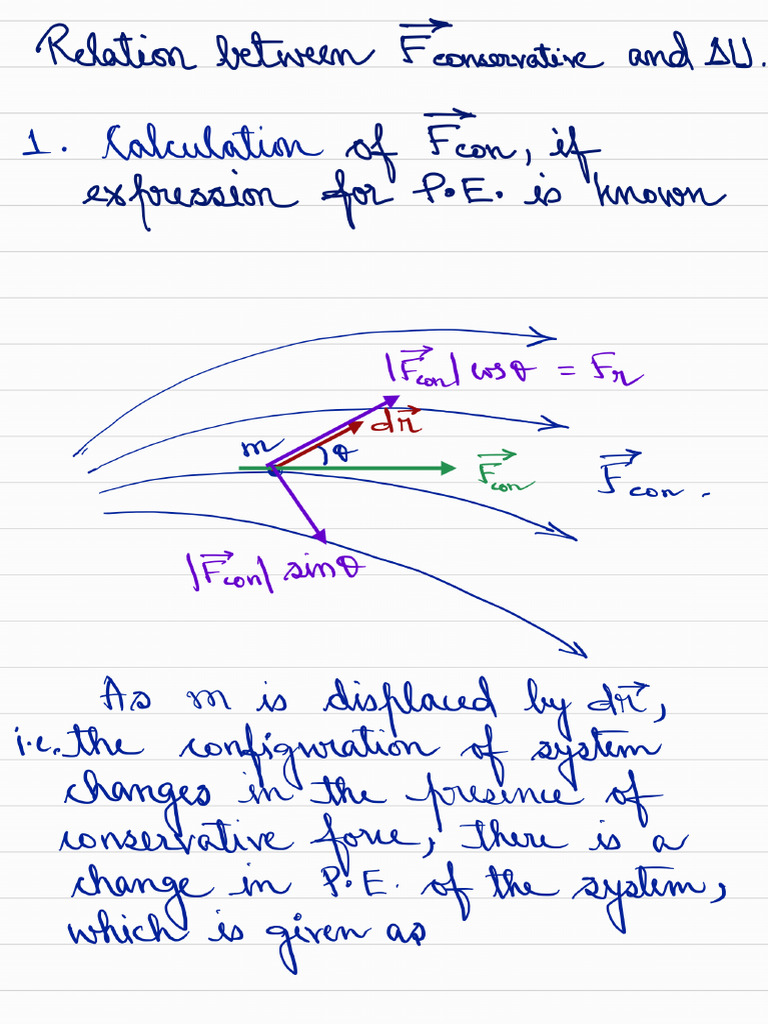 Relation between F⃗conservative and ΔU.
1. Calculation of F⃗con, if
expression for P.E. is known
|F⃗con| cosθ = Fr
dr⃗
m
θ
F⃗con
F⃗con.
|F⃗con| sinθ
As m is displaced by dr⃗,
i.e. the configuration of system
changes in the presence of
conservative force, there is a
change in P.E. of the system,
which is given as